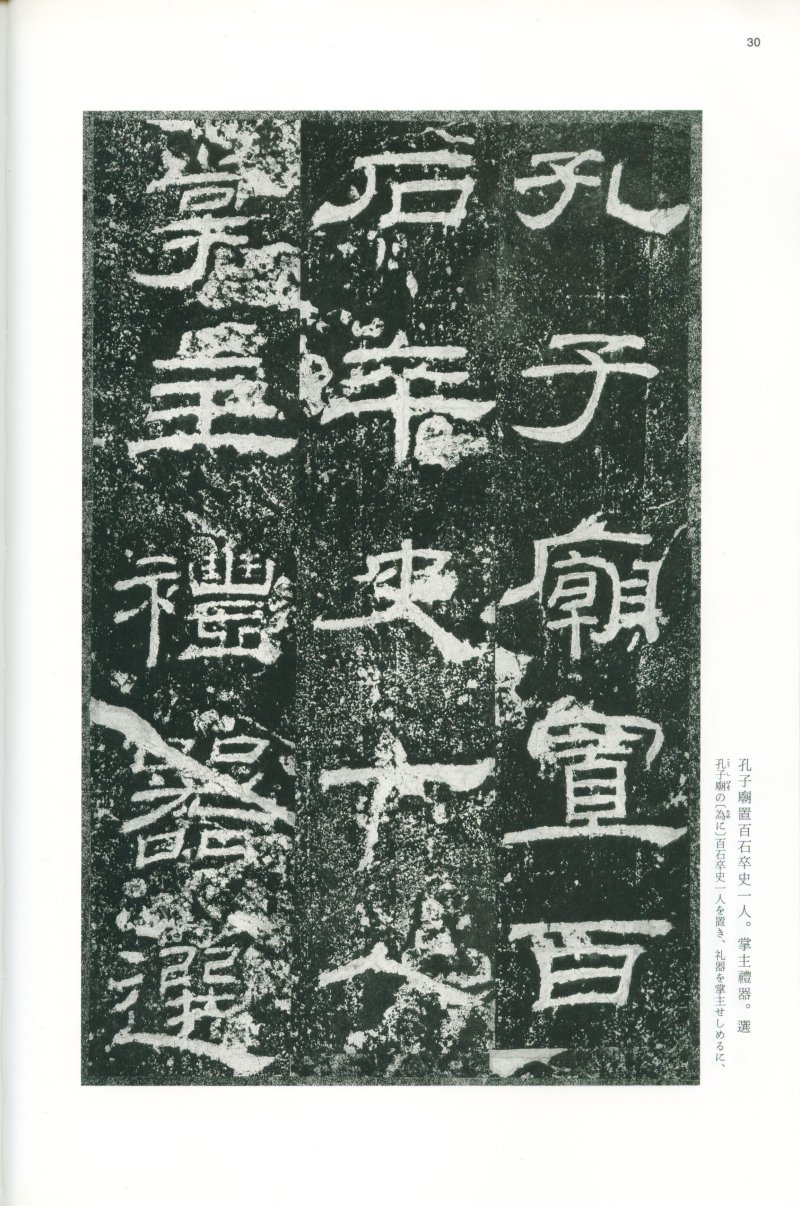 30
孔子廟置百
石卒史一人
掌主禮器選
孔子廟置百石卒史一人。掌主禮器。選
孔子廟の〔為に〕百石卒史一人を置き、礼器を掌主せしめるに、